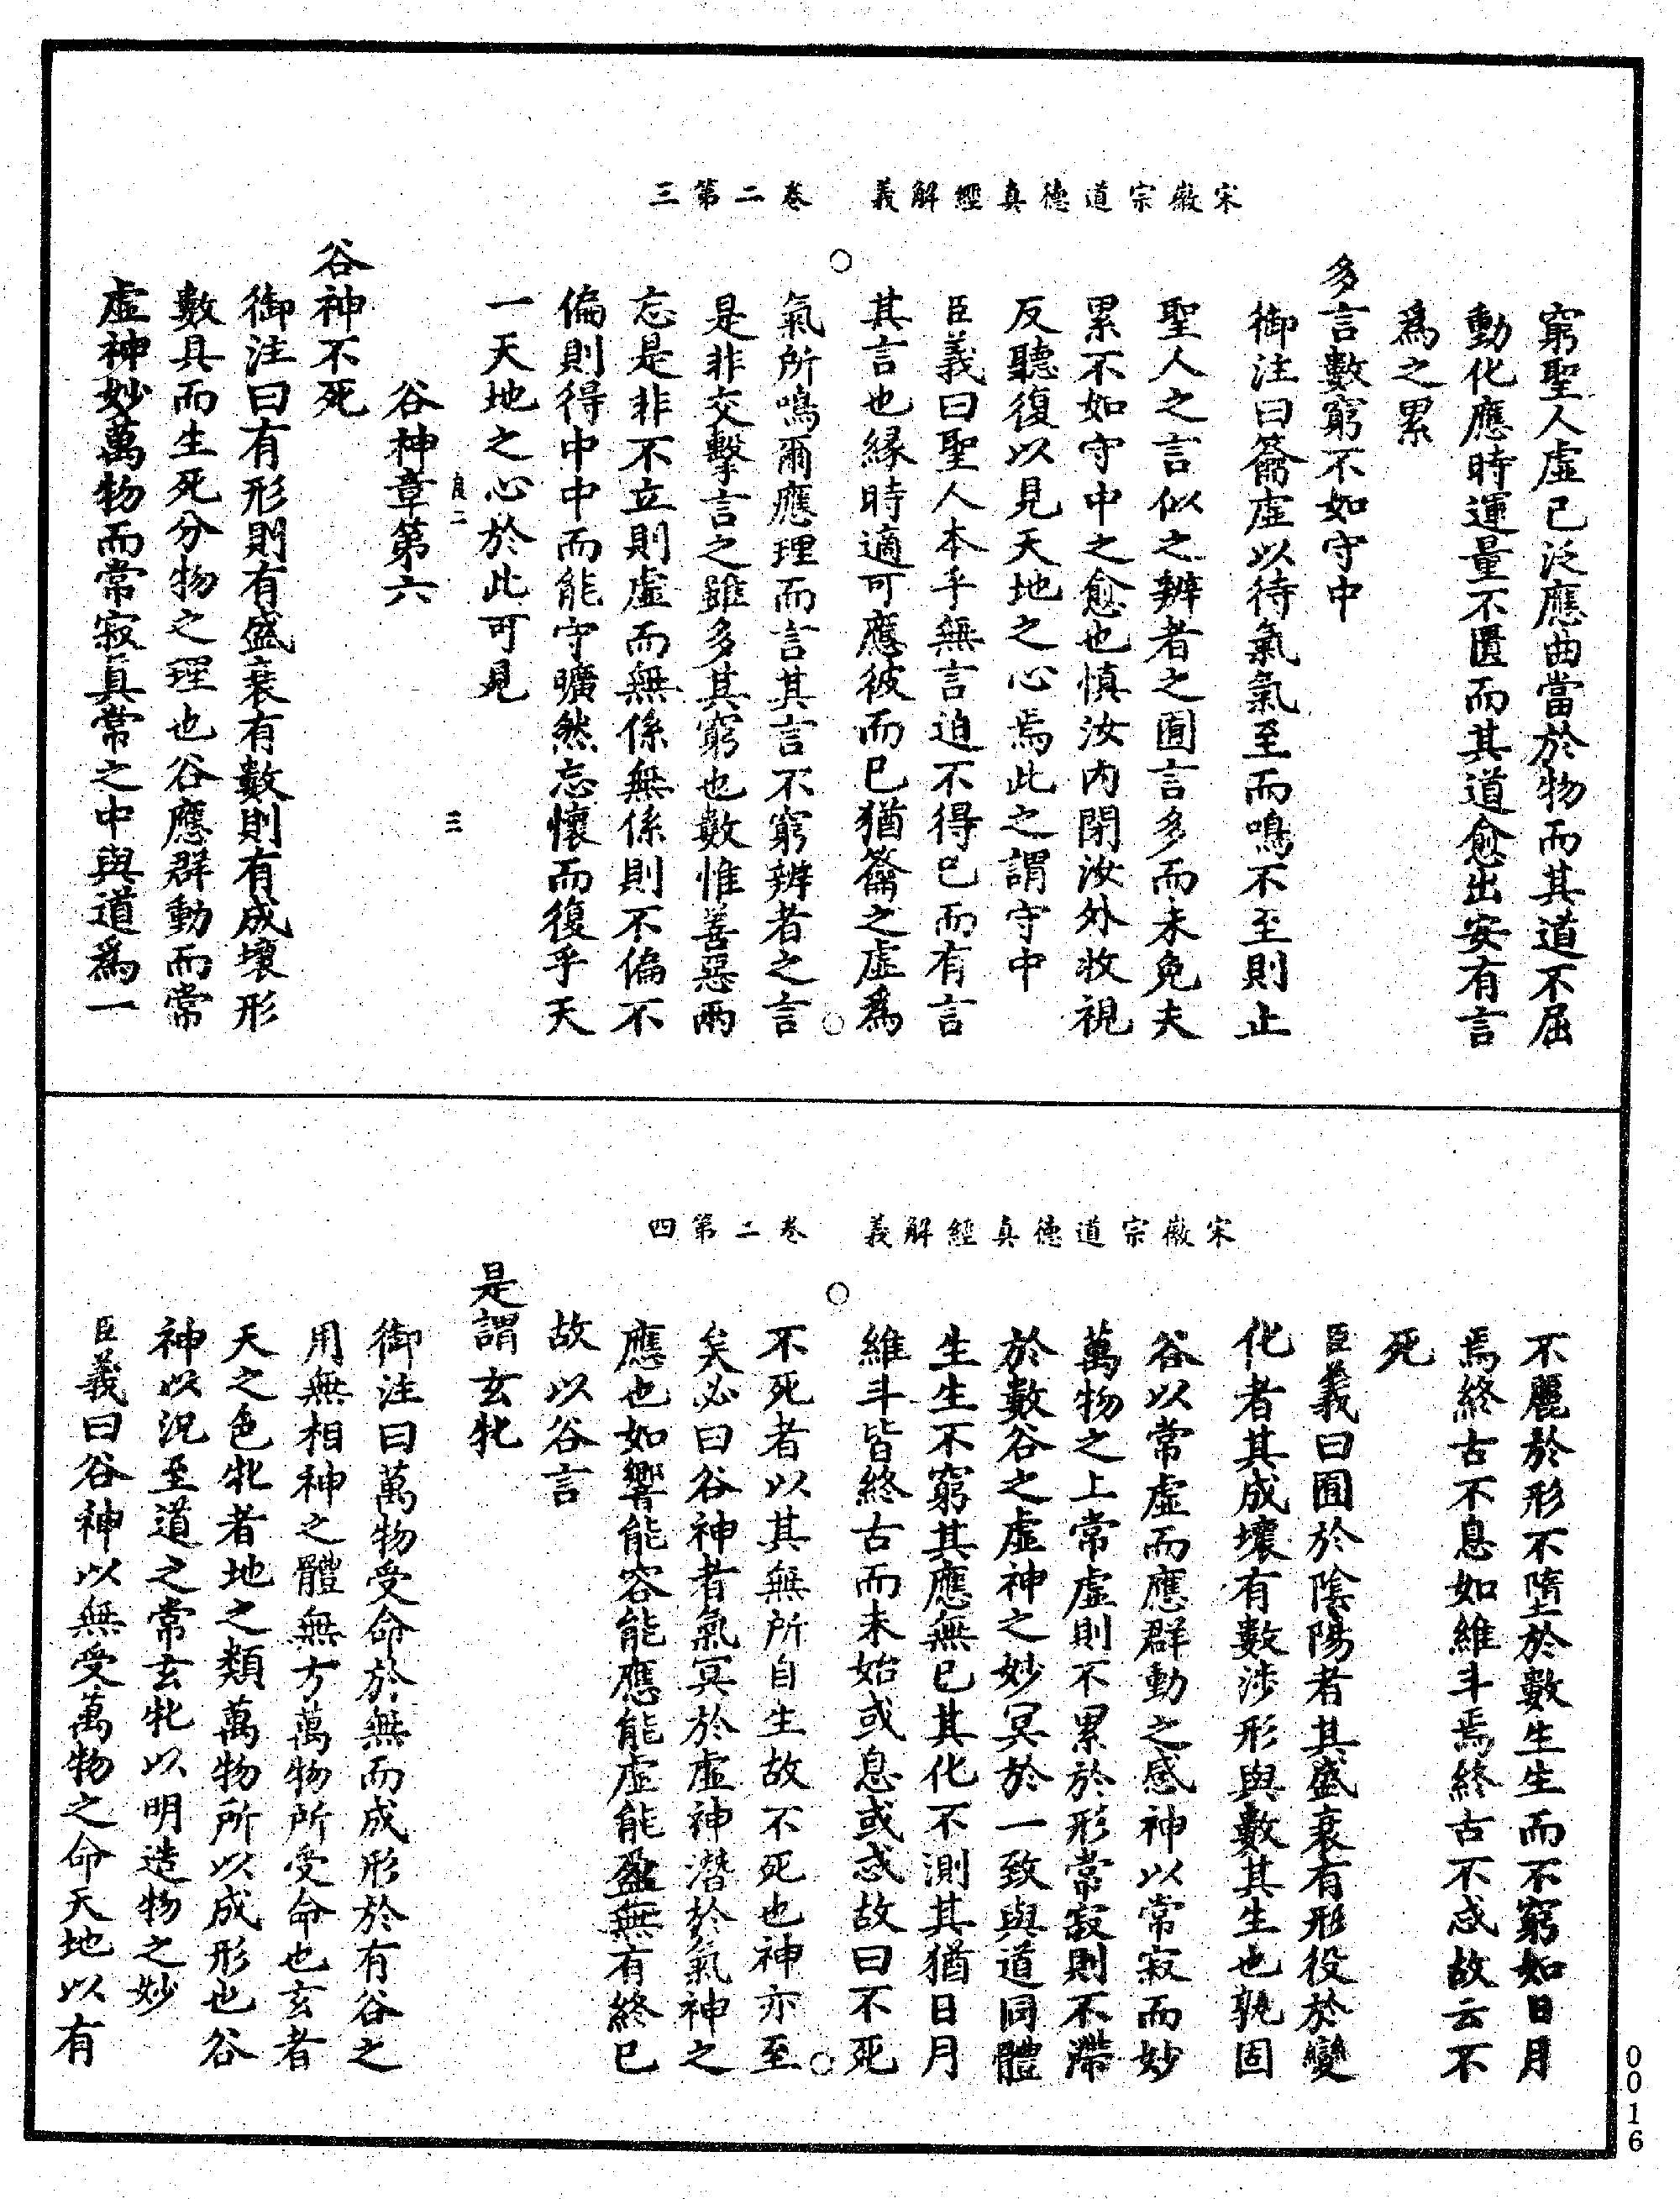 宋徽宗道德真經解義　卷二第三
窮聖人虛己泛應曲當於物而其道不屈
動化應時運量不匱而其道愈出安有言
爲之累
多言數窮不如守中
御注曰籥虛以待氣氣至而鳴不至則止
聖人之言似之辨者之囿言多而未免夫
累不如守中之愈也慎汝內閉汝外收視
反聽復以見天地之心焉此之謂守中
臣義曰聖人本乎無言迫不得已而有言
其言也緣時適可應彼而已猶籥之虛爲
氣所鳴爾應理而言其言不窮辨者之言
是非交擊言之雖多其窮也數惟善惡兩
忘是非不立則虛而無係無係則不偏不
偏則得中中而能守曠然忘懷而復乎天
一天地之心於此可見
良二　三
谷神章第六
谷神不死
御注曰有形則有盛衰有數則有成壞形
數具而生死分物之理也谷應群動而常
虛神妙萬物而常寂真常之中與道爲一
宋徽宗道德真經解義　卷二第四
不麗於形不墮於數生生而不窮如日月
焉終古不息如維斗焉終古不忒故云不
死
臣義曰囿於陰陽者其盛衰有形役於變
化者其成壞有數涉形與數其生也孰固
谷以常虛而應群動之感神以常寂而妙
萬物之上常虛則不累於形常寂則不滯
於數谷之虛神之妙冥於一致與道同體
生生不窮其應無已其化不測其猶日月
維斗皆終古而未始或息或忒故曰不死
不死者以其無所自生故不死也神亦至
矣必曰谷神者氣冥於虛神潛於氣神之
應也如響能容能應能虛能盈無有終已
故以谷言
是謂玄牝
御注曰萬物受命於無而成形於有谷之
用無相神之體無方萬物所受命也玄者
天之色牝者地之類萬物所以成形也谷
神以況至道之常玄牝以明造物之妙
臣義曰谷神以無受萬物之命天地以有
0016